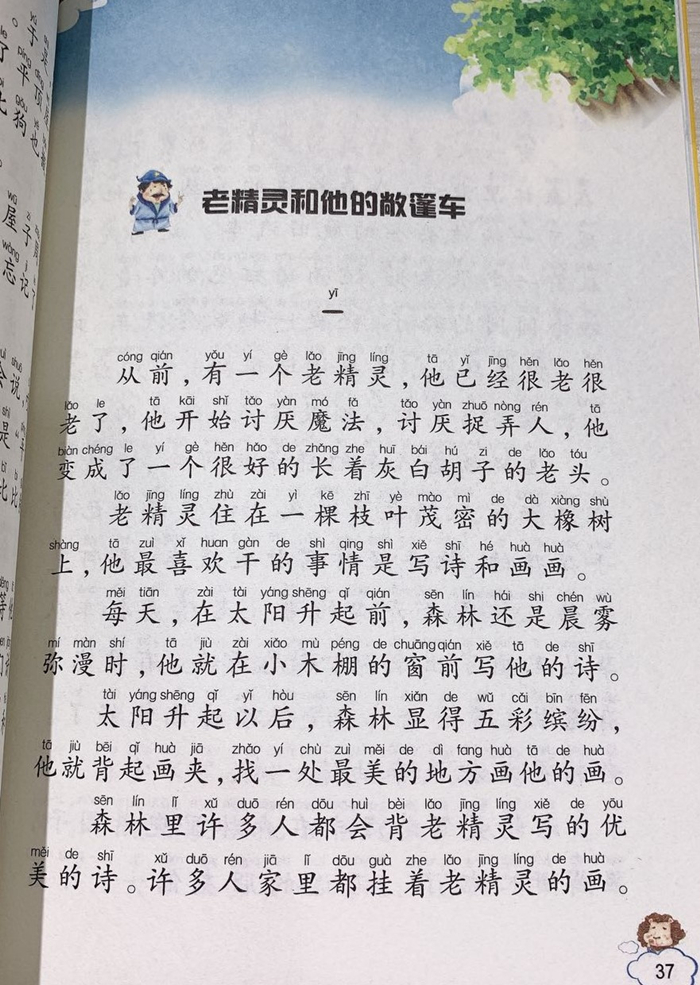 老精灵和他的敞篷车
yī
一
cóng qián yǒu yí gè lǎo jīng líng tā yǐ jīng hěn lǎo hěn
从前，有一个老精灵，他已经很老很
lǎo le tā kāi shǐ tǎo yàn mó fǎ tǎo yàn zhuō nòng rén tā
老了，他开始讨厌魔法，讨厌捉弄人，他
biàn chéng le yí gè hěn hǎo de zhǎng zhe huī bái hú zi de lǎo tóu
变成了一个很好的长着灰白胡子的老头。
lǎo jīng líng zhù zài yì kē zhī yè mào mì de dà xiàng shù
老精灵住在一棵枝叶茂密的大橡树
shàng tā zuì xǐ huan gàn de shì qing shì xiě shī hé huà huà
上，他最喜欢干的事情是写诗和画画。
měi tiān zài tài yáng shēng qǐ qián sēn lín hái shi chén wù
每天，在太阳升起前，森林还是晨雾
mí màn shí tā jiù zài xiǎo mù péng de chuāng qián xiě tā de shī
弥漫时，他就在小木棚的窗前写他的诗。
tài yáng shēng qǐ yǐ hòu sēn lín xiǎn de wǔ cǎi bīn fēn
太阳升起以后，森林显得五彩缤纷，
tā jiù bēi qǐ huà jiā zhǎo yí chù zuì měi de dì fang huà tā de huà
他就背起画夹，找一处最美的地方画他的画。
sēn lín lǐ xǔ duō rén dōu huì bèi lǎo jīng líng xiě de yōu
森林里许多人都会背老精灵写的优
měi de shī xǔ duō rén jiā lǐ dōu guà zhe lǎo jīng líng de huà
美的诗。许多人家里都挂着老精灵的画。
37